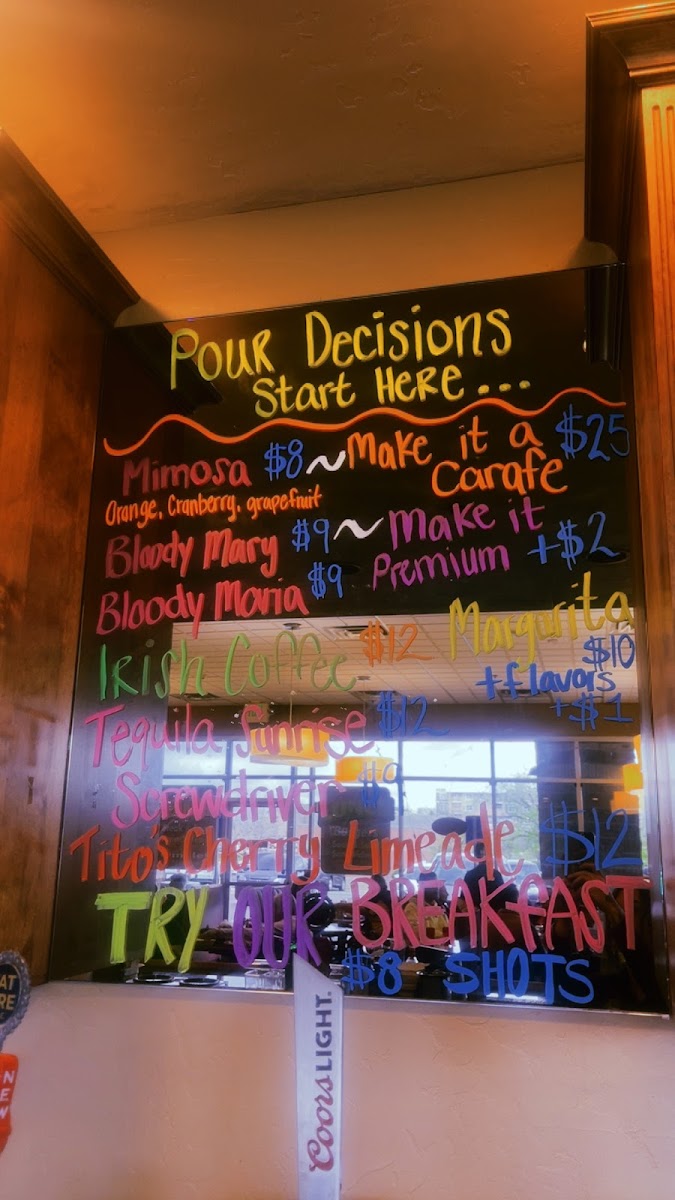 Pour Decisions
Start Here...
Mimosa $8 ~ Make it a Carafe $25
Orange, Cranberry, grapefruit
Bloody Mary $9 ~ Make it Premium +$2
Bloody Maria $9
Margarita $10
+flavors +$1
Irish Coffee $12
Tequila Sunrise $12
Screwdriver $9
Tito's Cherry Limeade $12
TRY OUR BREAKfAST
$8 SHOTS
Coors LIGHT
AT
RE
N
E
W